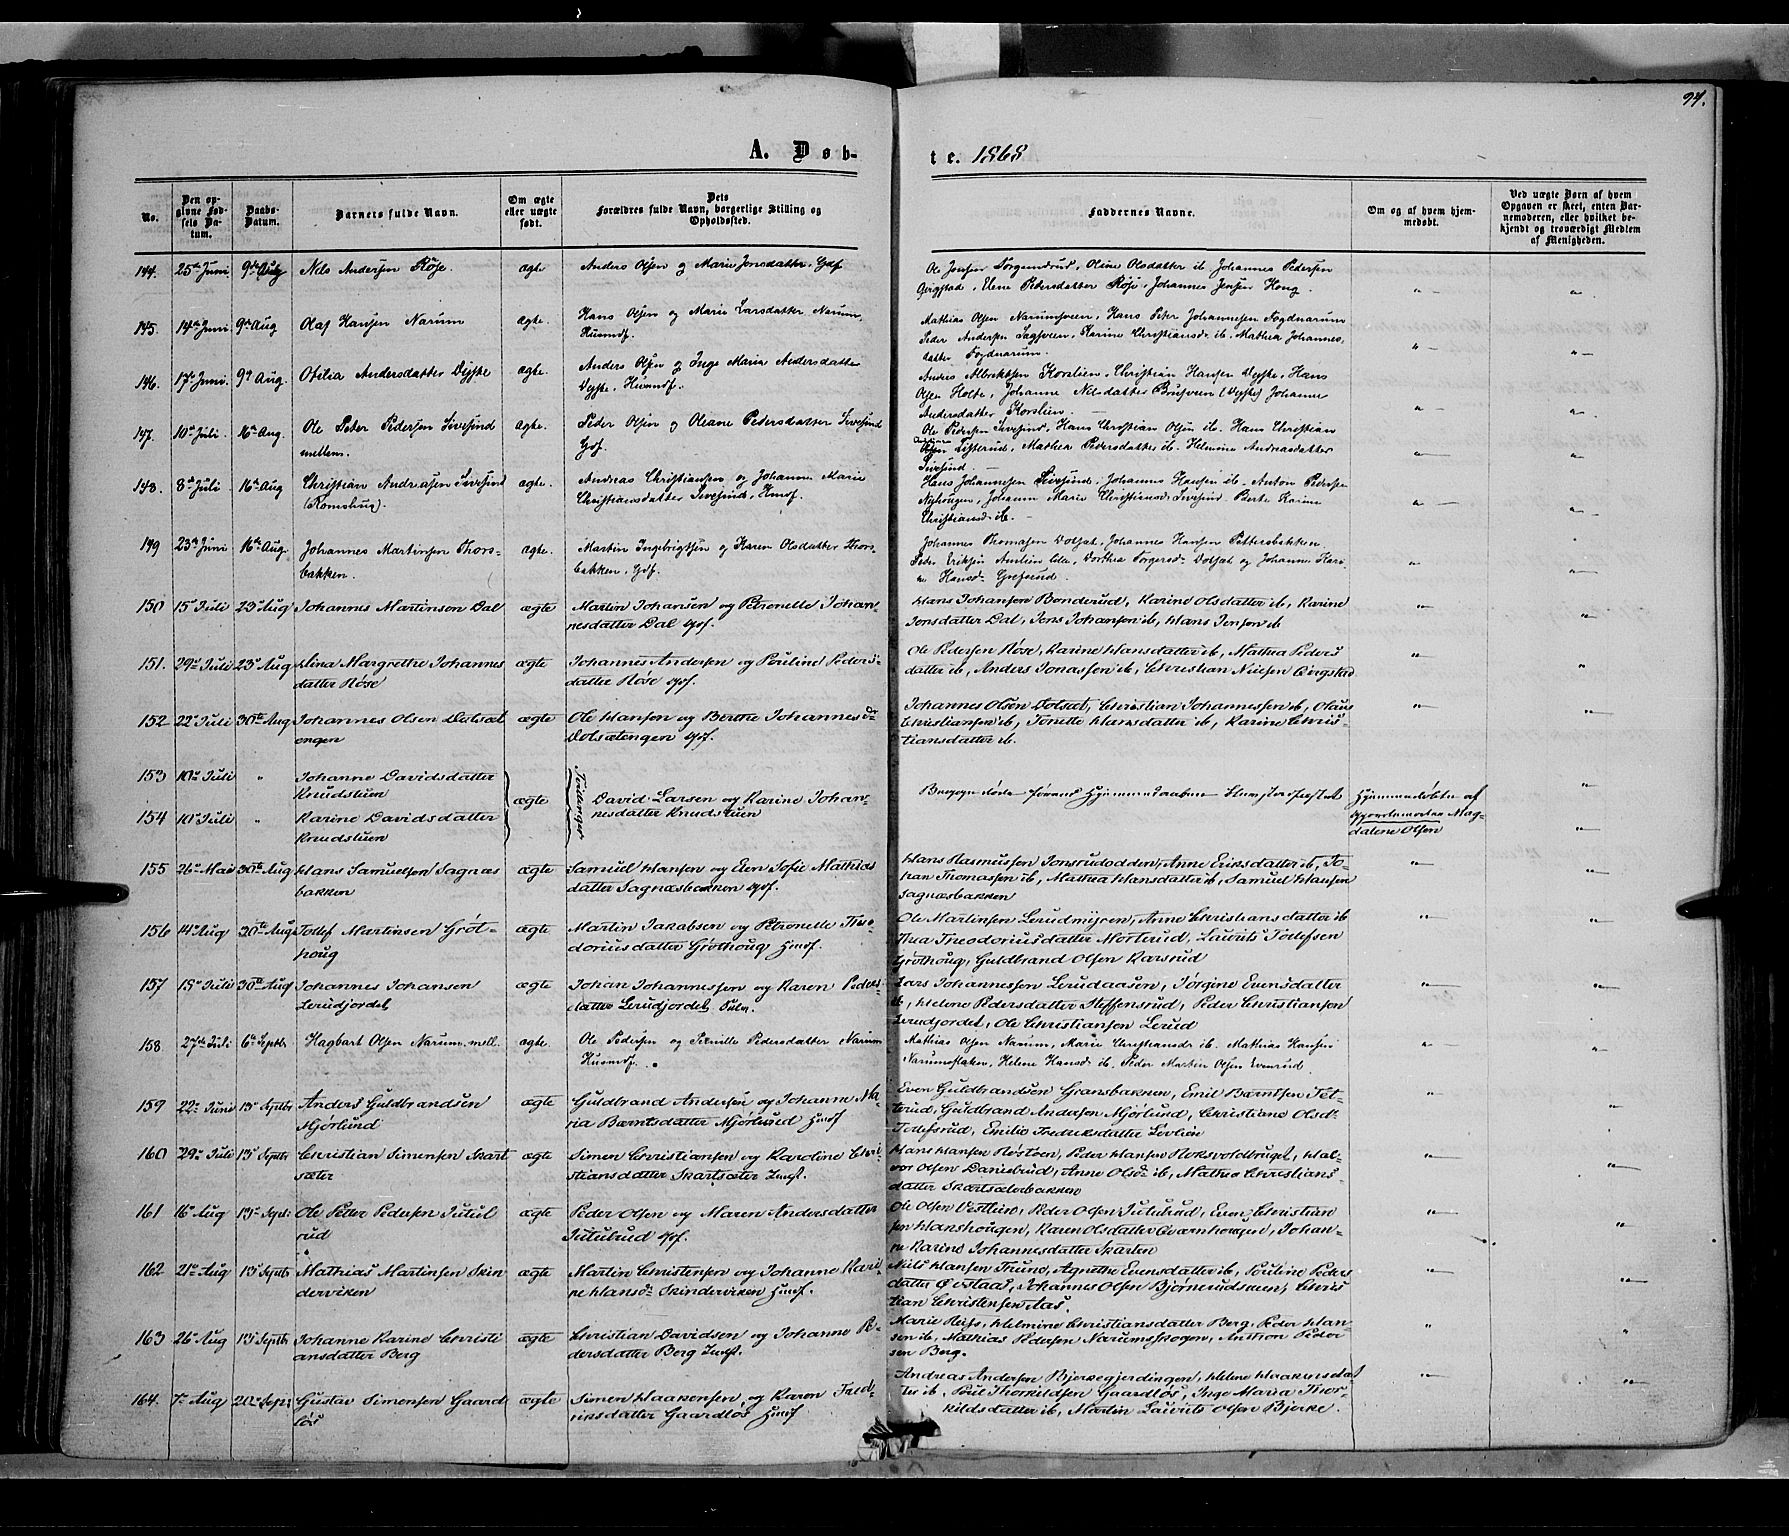 94.
A. Døb-
te. 1868
No.
Den op-
givne Fød-
sels Da-
tum.
Daabs-
Datum.
Barnets fulde Navn.
Om ægte
eller uægte
født.
Dets
Forældres fulde Navn, borgerlige Stilling og
Opholdssted.
Faddernes Navne.
Om og af hvem hjem-
medøbt.
Ved uægte Børn af hvem
Opgaven er skeet, enten Bar-
nemoderen, eller hvilket be-
kjendt og troværdigt Medlem
af Menigheden.
144. 25de Juni 9de Aug Nils Andersen Røse. ægte Anders Olsen og Marie Jonsdatter, Gdf
Ole Jensen Torgundrud, Oline Olsdatter ib Johannes Pedersen
Gingstad, Elene Pedersdatter Røse, Johannes Jensen Houg.
145. 14de Juni 9de Aug Olaf Hansen Narum ægte. Hans Olsen og Marie Larsdatter Narum,
Huusmdf.
Mathias Olsen Narumsveen, Hans Peter Johannessen Fogdnarum
Peder Andersen Sagsveen, Karine Christiansd. ib, Mathea Johannes-
datter Fogdnarum.
146. 17de Juni. 9de Aug. Ofilia Andersdatter Dyste ægte. Anders Olsen og Inge Maria Andersdatter
Dyste, Husmdf.
Anders Albrektsen Korslien, Christian Hansen Dyste, Hans
Olsen Holte, Johanne Nilsdatter Brusveen (Dyste) Johanne
Andersdatter Korslien.
147. 10de Juli. 16de Aug. Ole Peter Pedersen Sivesind
mellem. ægte. Peder Olsen og Oleane Pedersdatter Sivesind
Gdf.
Ole Pedersen Sivesind, Hans Christian Olsen ib. Hans Christian
Olsen Listerud, Mathea Pedersdatter ib. Helmine Andreasdatter
Sivesind.
148. 8de Juli 16de Aug Christian Andreasen Sivesind
(Romshus). ægte. Andreas Christiansen og Johanne Marie
Christiansdatter Sivesind, Hmdf.
Hans Johannesen Sivesind, Johannes Hansen ib. Anton Pedersen
Nyhougen, Johanne Marie Christiansd. Sivesind Berte Karine
Christiansd. ib.
149 23de Juni 16de Aug. Johannes Martinsen Thors-
bakken. ægte. Martin Ingebrigtsen og Karen Olsdatter Thors-
bakken, Gdf.
Johannes Thomasen Dotset, Johannes Hansen Pettersbakken
Peder Eriksen Amlien Eden, Dorthea Torgersd. Dotset og Johanne Kari-
ne Hansd. Grefsrud.
150 15de Juli 23de Aug Johannes Martinson Dal ægte Martin Johansen og Petronelle Johan-
nesdatter Dal gdf.
Hans Johansen Bonderud, Karine Olsdatter ib, Karine
Jonsdatter Dal, Jens Johansen ib, Hans Jensen ib
151. 29de Juli 23de Aug Lina Margrethe Johannes
datter Røse ægte Johannes Andersen og Pouline Peders-
datter Røse gdf.
Ole Pedersen Røse, Karine Hansdatter ib, Mathea Peders
datter ib, Anders Jonassen ib, Christian Nielsen Gingstad
152 22de Juli 30te Aug Johannes Olsen Dotset
engen ægte Ole Hansen og Berthe Johannesdr
Dotsætengen gdf.
Johannes Olsen Dotset, Christian Johannessen ib, Olaus
Christiansen ib, Tonette Hansdatter ib, Karine Chris-
tiansdatter ib.
153 10de Juli Johanne Davidsdatter
Knudstuen
154 10de Juli Karine Davidsdatter
Knudstuen ægte David Larsen og Karine Johan-
nesdatter Knudstuen
Begge døde forend Hjemmedaaben Stadfæstet
Hjemmedøbte af
Gjordemoder Mag-
dalene Olsen
155 26de Mai 30te Aug Hans Samuelsen Sagnæs
bakken ægte Samuel Hansen og Elen Sofie Mathias
datter Sagnæsbakken gdf.
Hans Rasmussen Jonsrudodden, Anne Eriksdatter ib, Jo-
han Thomassen ib, Mathea Hansdatter ib, Samuel Hansen
Sagnæsbakken
156 14de Aug 30te Aug Tollef Martinsen Grøt-
houg ægte Martin Jakobsen og Petronelle Theo-
doriusdatter Grøthoug Husmdf.
Ole Martinsen Lerudmyren, Anne Christiansdatter ib
Thea Theodoriusdatter Morterud, Laurits Tollefsen
Grøthoug, Guldbrand Olsen Karsrud
157 15de Juli 30te Aug Johannes Johansen
Lerudjordet ægte Johan Johannessen og Karen Peders-
datter Lerudjordet
Lars Johannessen Lerudaasen, Jørgine Evensdatter
ib, Helene Pedersdatter Steffensrud, Peder Christiansen
Lerudjordet, Ole Christiansen Lerud
158. 27de Juli 6te Septbr Hagbart Olsen Narum mell. ægte Ole Pedersen og Pernille Pedersdatter Narum
Husmdf.
Mathias Olsen Narum, Marie Christiansdr ib. Mathias Hansen
Narumsflaten, Helene Hansd. ib, Peder Martin Olsen Evenrud.
159 22de Juni 13de Septbr Anders Guldbrandsen
Mjørlund ægte Guldbrand Andersen og Johanne Ma-
ria Berntsdatter Mjørlund Husmdf
Even Guldbrandsen Gransbakken, Emil Berntsen Tet-
terud, Guldbrand Andersen Mjørlund, Christiane Olsdr
Tollefsrud, Emilie Fredriksdatter Løvlien
160 29de Juli 13de Septbr Christian Simensen Skart
sæter ægte Simen Christiansen og Karoline Chri-
stiansdatter Skartsæter
Hans Hansen Røstøen, Peder Hansen Roksvoldbruget, Hal-
vor Olsen Danielrud, Anne Olsdr ib, Mathea Christians
datter Skartsæterbakken
161 16de Aug 13de Septbr Ole Petter Pedersen Tutul
rud ægte Peder Olsen og Maren Andersdatter
Tutulrud gdf.
Ole Olsen Vestlien, Peder Olsen Tutulrud, Even Christian
sen Hanshougen, Karen Olsdatter Qværnhougen, Johan-
ne Karine Johannesdatter Skarten
162 21de Aug 13de Septbr Mathias Martinsen Skin
derviken ægte Martin Christensen og Johanne Kari-
ne Hansdr Skinderviken Husmdf.
Niels Hansen Trund, Agnethe Evensdatter ib, Pouline Peders
datter Øvstaas, Johannes Olsen Bjørnerudstuen, Chris
tian Christensen Aas.
163 26de Aug 13de Septbr Johanne Karine Christi
ansdatter Berg ægte Christian Davidsen og Johanne Pe-
dersdatter Berg
Marie Heys, Helmine Christiansdatter Berg, Peder Han-
sen ib, Mathias Pedersen Narumsskogen, Anthon Peder-
sen Berg.
164. 7de Aug 20de Septbr Gustav Simensen Gaard
løs ægte Simen Haakensen og Karen Fred-
riksdatter Gaardløs Husmdf
Andreas Andersen Bjerkegjerdingen, Helene Haakensdat
ter ib, Poul Thorkildsen Gaardløs, Inge Maria Thor-
kildsdatter ib, Martin Laurits Olsen Bjerke.